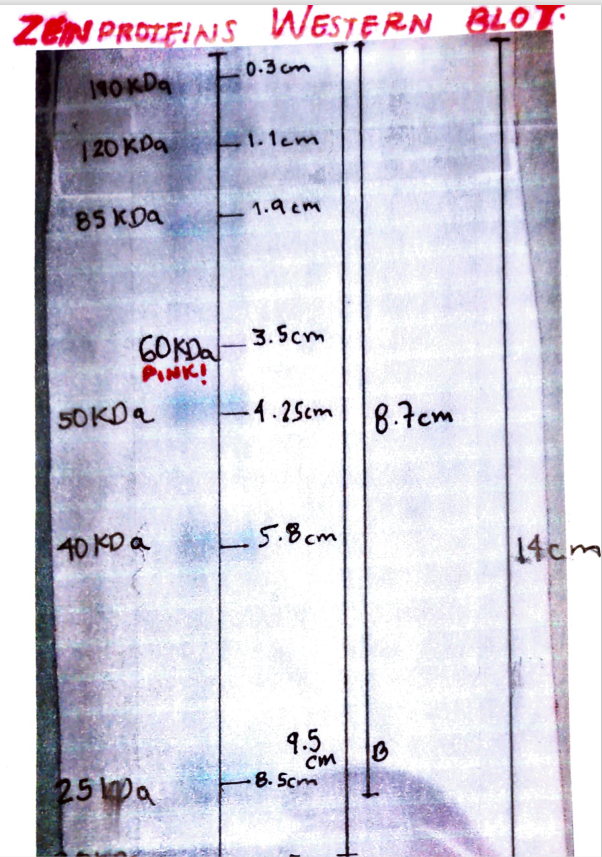 ZEIN PROTEINS WESTERN BLOT.
190 KDa 0.3cm
120 KDa 1.1cm
85 KDa 1.9cm
60KDa 3.5cm
PINK!
50KDa 4.25cm
8.7cm
40 KDa 5.8cm
14cm
9.5
cm
B
25 kDa 8.5cm